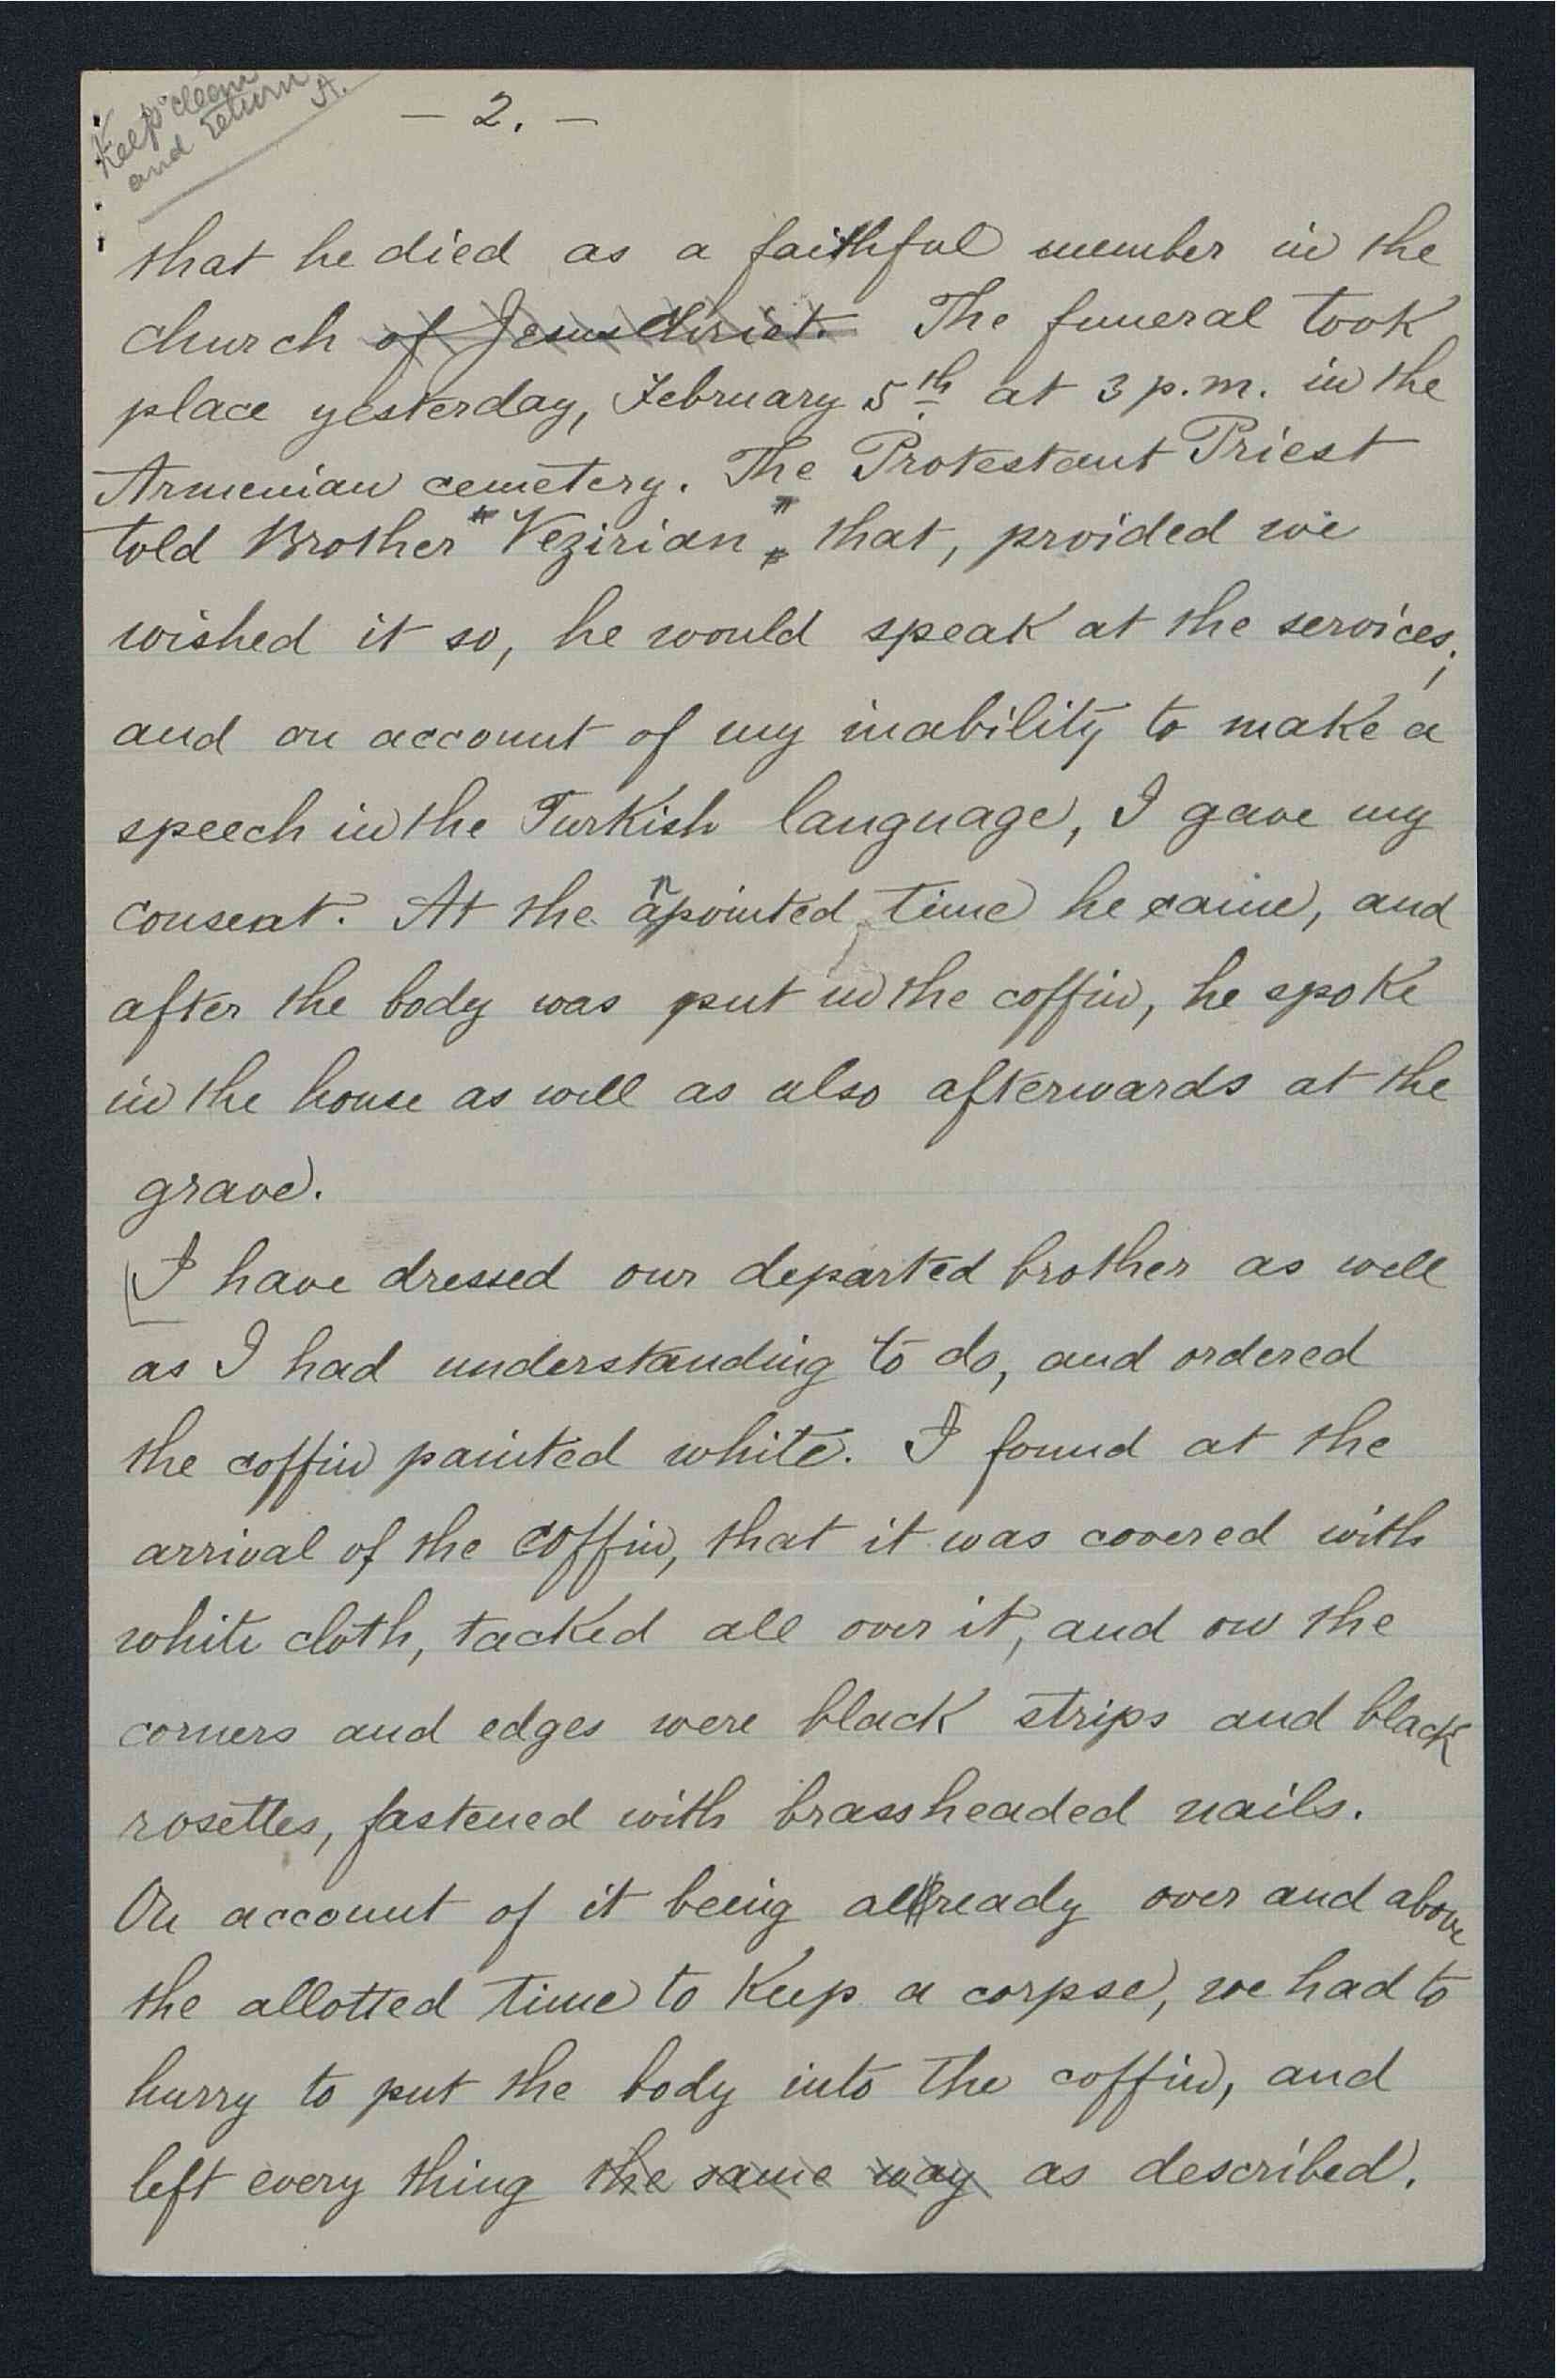 Keep clean
and return
A.
- 2. -
that he died as a faithful member in the
church of Jesus Christ. The funeral took
place yesterday, February 5th at 3 p.m. in the
Armenian cemetery. The Protestant Priest
told Brother "Vezirian" that, proided we
wished it so, he would speak at the services;
and on account of my inability to make a
speech in the Turkish language, I gave my
consent. At the apointed time he came, and
after the body was put in the coffin, he spoke
in the house as well as also afterwards at the
grave.
I have dressed our departed brother as well
as I had understanding to do, and ordered
the coffin painted white. I found at the
arrival of the coffin, that it was covered with
white cloth, tacked all over it, and on the
corners and edges were black strips and black
rosettes, fastened with brassheaded nails.
On account of it being allready over and above
the allotted time to Keep a corpse, we had to
hurry to put the body into the coffin, and
left every thing the same way as described.